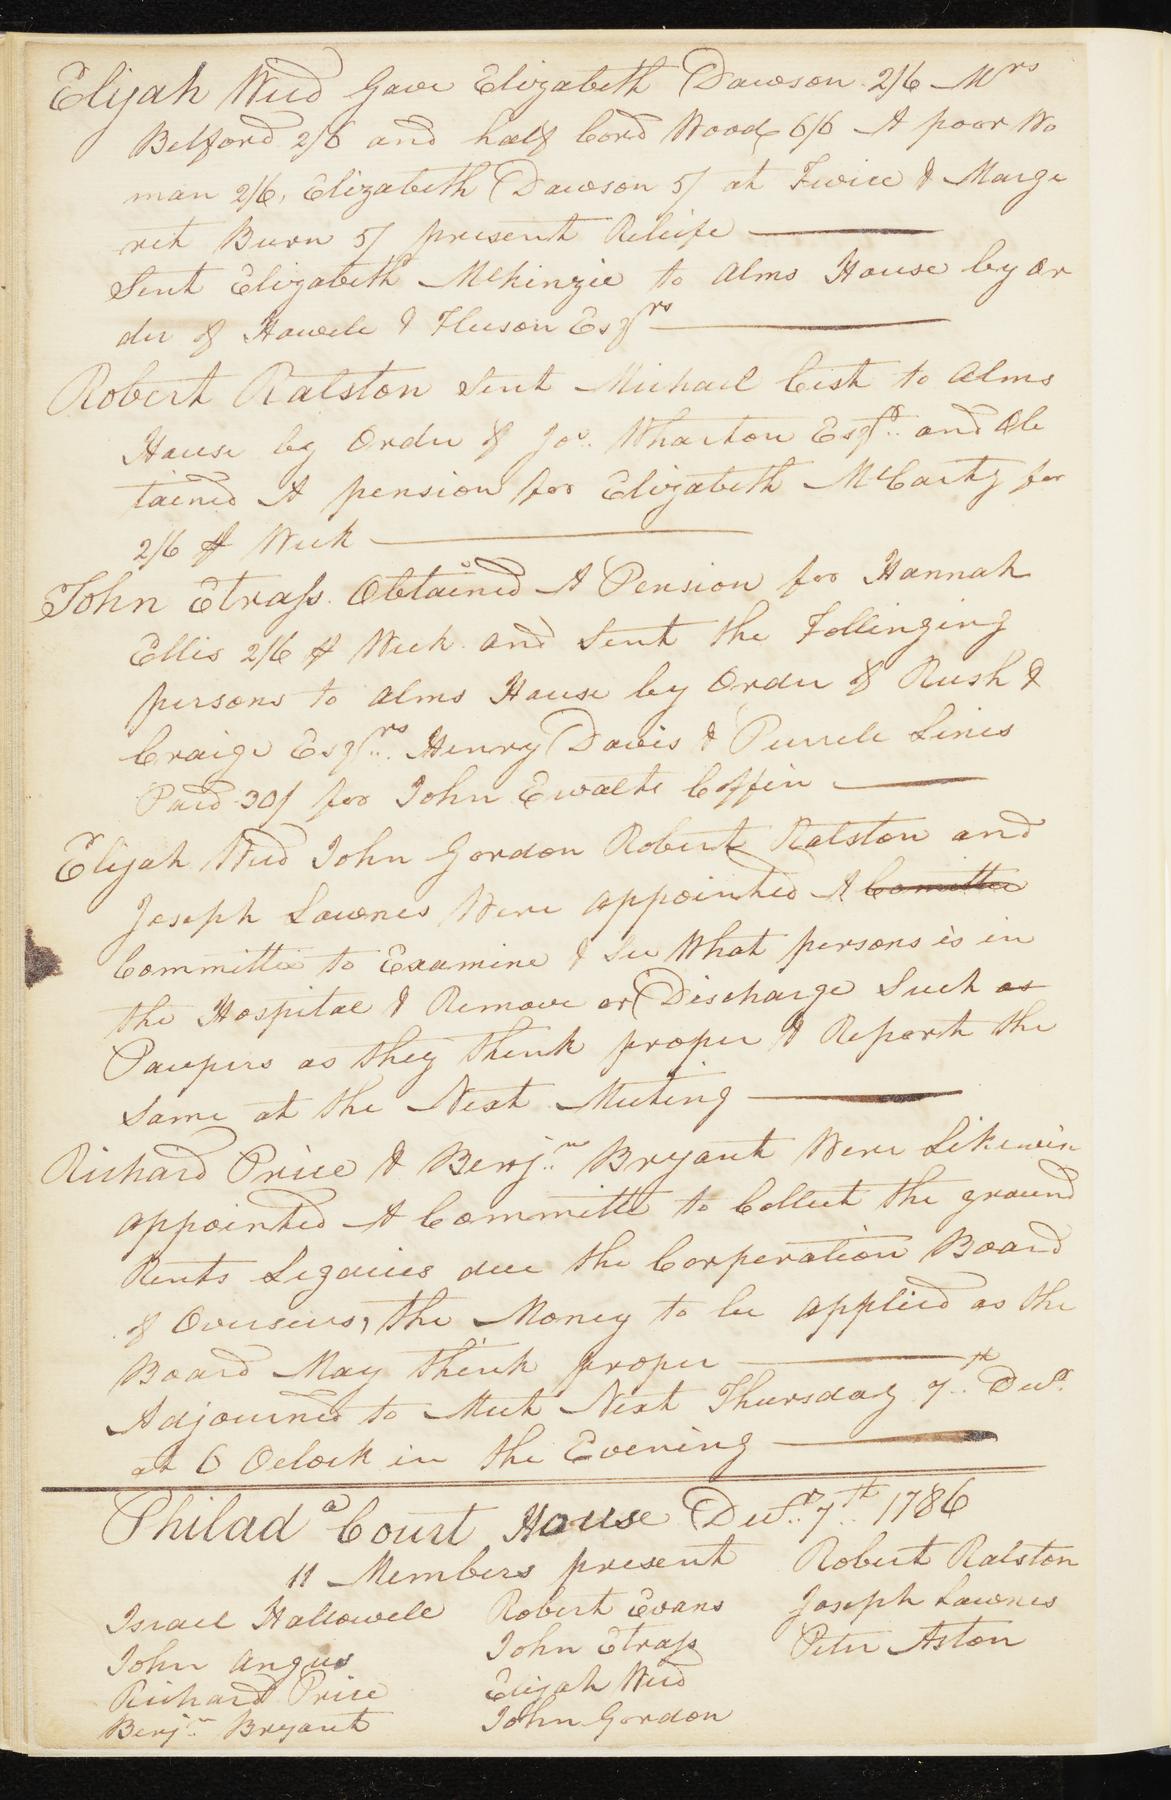 Elijah Weed Gave Elizabeth Dawson 2/6 Mrs
Belford 2/6 and half Cord Wood 6/6 A poor Wo
man 2/6, Elizabeth Dawson 5/ at Twice & Marga
ret Burn 5/ present Releife
Sent Elizabeth McKinzie to Alms House by Or
der of Howell & Huson Esqrs
Robert Ralston Sent Michael Cist to Alms
House by Order of Jos. Wharton Esqr. and Ob
tained A pension for Elizabeth McCarty for
2/6 ⅌ Week
John Strass Obtained A Pension for Hannah
Ellis 2/6 ⅌ Week and Sent the Follinging
persons to Alms House by Order of Rush &
Craige Esqrs. Henry Davis & Purcele Lines
Paid 30/ for John Ewalts Coffin
Elijah Weed John Gordon Robert Ralston and
Joseph Lownes Were appointed A Comittee
Committee to Examine & See What persons is in
the Hospital & Remove or Discharge Such as
Paupers as they think proper & Report the
Same at the Next Meeting
Richard Price & Benjn. Bryant Were Likewise
appointed A Committee to Collect the ground
Rents Legacies due the Corperation Board
of Overseers, the Money to be applied as the
Board May think proper
Adjourned to Meet Next Thursday 7th. Decr.
at 6 Oclock in the Evening
Philada Court House Decr. 7th. 1786
11 Members present Robert Ralston
Israel Hallowell Robert Evans Joseph Lownes
John Angus John Strass Peter Aston
Richard Price Elijah Weed
Benjn. Bryant John Gordon